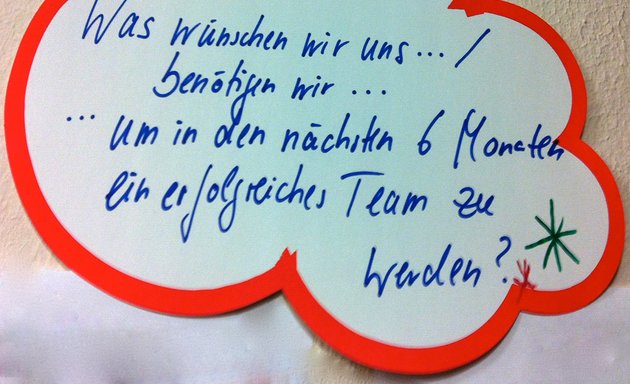 Was wünschen wir uns ... /
benötigen wir ...
... um in den nächsten 6 Monaten
ein erfolgreiches Team zu
werden?